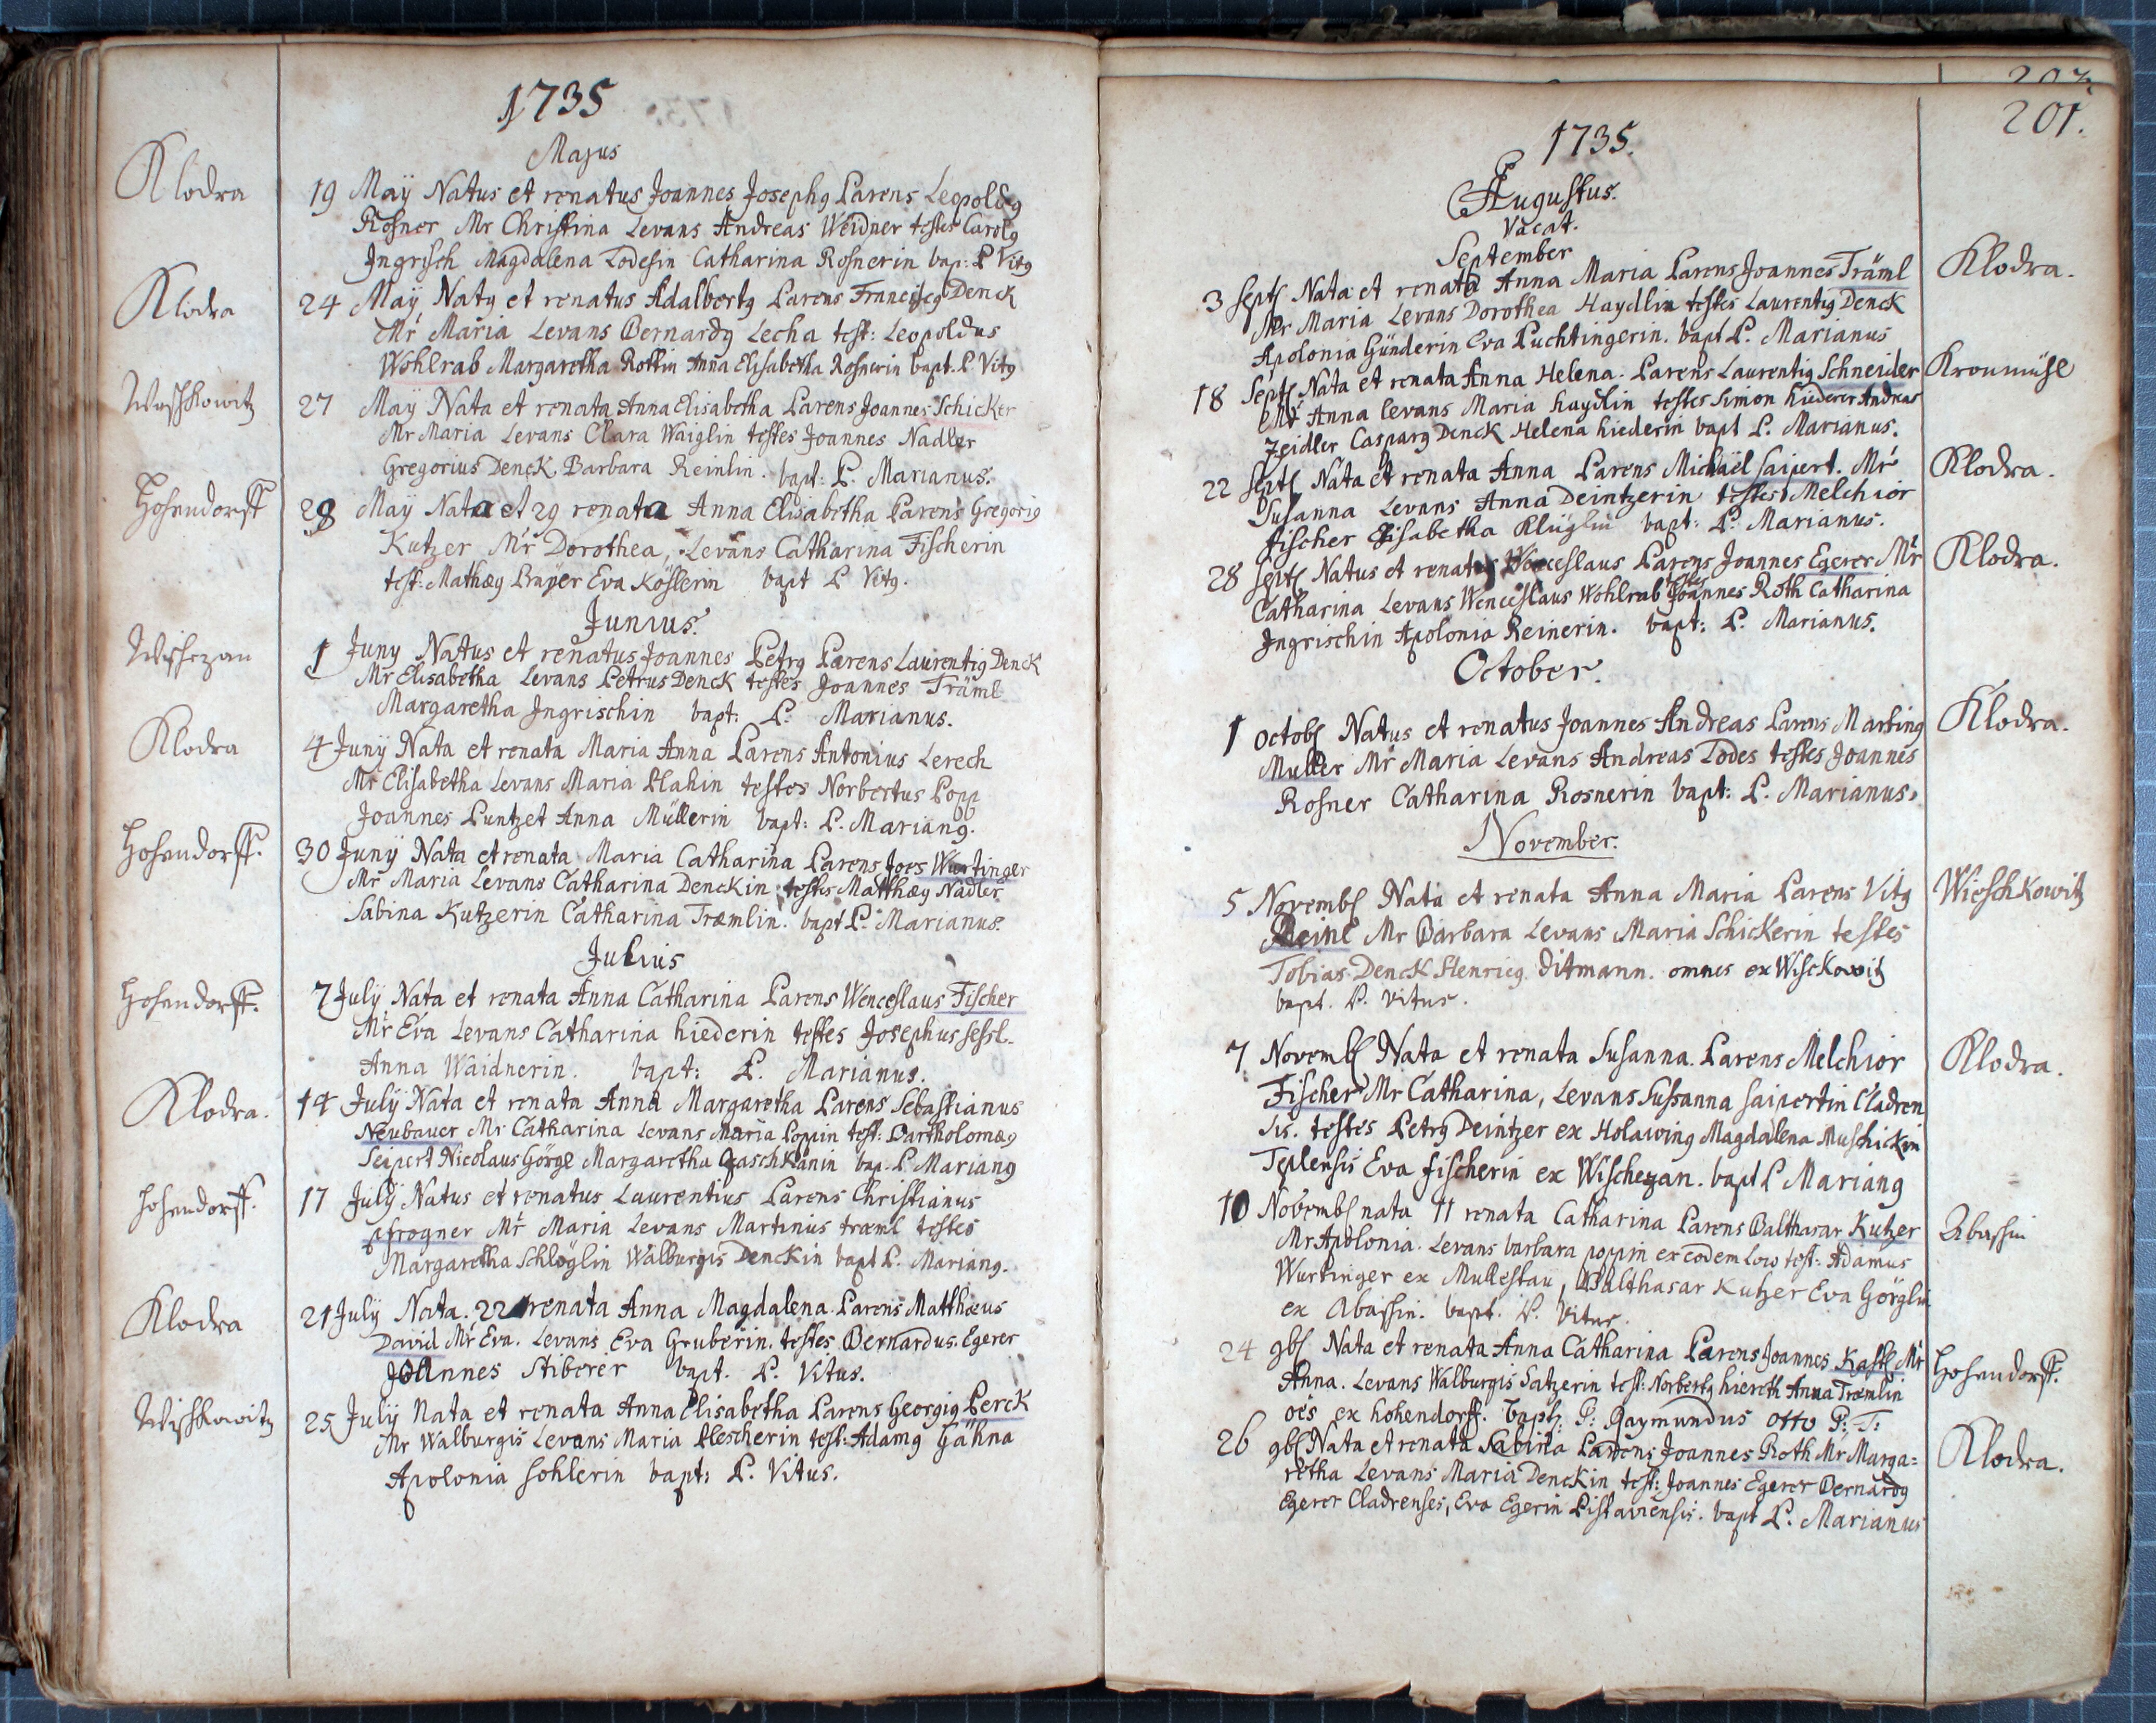 1735
Majus
Klodra
19 Maÿ Natus et renatus Joannes Josephg Parens Leopoldg
Rosner Mr Christina Levans Andreas Weidner testes Carolg
Ingrisch Magdalena Todesin Catharina Rosnerin bap: P Vitg
Klodra
24 Maÿ Natg et renatus Adalbertg Parens Franciscg Denck
Mr Maria Levans Bernardg Lecha test: Leopoldus
Wohlrab Margaretha Rottin Anna Elisabetha Rosnerin bapt. P Vitg
Weschkowitz
27 Maÿ Nata et renata Anna Elisabetha Parens Joannes Schicker
Mr Maria Levans Clara Waiglin testes Joannes Nadler
Gregorius Denck. Barbara Reinlin. bapt: P. Marianus.
Hohendorff
28 Maÿ Nata et 29 renata Anna Elisabetha Parens Gregorig
Kutzer Mr Dorothea, Levans Catharina Fischerin
test: Mathæg Eva Köslerin bapt P Vitg.
Junius.
Wischezan
1 Juny Natus et renatus Joannes Petrg Parens Laurentig Denck
Mr Elisabetha Levans Petrus Denck testes Joannes Träml
Margaretha Ingrischin bapt: P. Marianus.
Klodra
4 Junÿ Nata et renata Maria Anna Parens Antonius Lerech
Mr Elisabetha Levans Maria Plahin testes Norbertus Popp
Joannes Puntzet Anna Müllerin bapt: P. Mariang.
Hohendorff.
30 Junÿ Nata et renata Maria Catharina Parens Joes Wurtinger
Mr Maria Levans Catharina Denckin testes Matthæg Nadler
Sabina Kutzerin Catharina Træmlin. bapt P. Marianus.
Julius
Hohendorff.
7 Julÿ Nata et renata Anna Catharina Parens Wenceslaus Fischer
Mr Eva Levans Catharina hiederin testes Josephus sessl.
Anna Waidnerin. bapt: P. Marianus.
Klodra.
14 Julÿ Nata et renata Anna Margaretha Parens Sebastianus
Neubauer Mr Catharina Levans Maria Poppin test: Bartholomæg
Seipert Nicolaus Görgl Margaretha bap. P. Mariang
hohendorff.
17 Julÿ Natus et renatus Laurentius Parens Christianus
pfrogner Mr Maria Levans Martinus træml testes
Margaretha Schlöglin Walburgis Denckin bapt P. Mariang.
Klodra
21 Julÿ Nata. 22 renata Anna Magdalena Parens Matthæus
David Mr Eva. Levans Eva Gruberin. testes Bernardus. Egerer
Joannes Stiberer bapt. P. Vitus.
Wischkowitz
25 Julÿ Nata et renata Anna Elisabetha Parens Georgig Perck
Mr Walburgis Levans Maria Plescherin test: Adamg Gähna
Apolonia sohlerin bapt: P. Vitus.
203.
201.
1735.
Augustus.
Vacat.
September
3 Sept Nata et renata Anna Maria Parens Joannes Träml
Klodra.
Mr Maria Levans Dorothea Haydlin testes Laurentig Denck
Apolonia Günderin Eva Puchtingerin. bapt P. Marianus
18 Sept Nata et renata Anna Helena. Parens Laurentig Schneider
Kronmühl
Mr Anna levans Maria haydlin testes Simon hiederer Andreas
Zeidler Casparg Denck Helena hiederin bapt P. Marianus.
22 Sept Nata et renata Anna Parens Michäel saipert. Mr
Klodra.
Susanna Levans Anna Deintzerin testes Melchior
fischer Elisabetha Klüglin bapt: P. Marianus.
28 Sept Natus et renatus Wenceslaus Parens Joannes Egerer Mr
Klodra.
Catharina Levans Wenceslaus Wohlrab testes Joannes Roth Catharina
Ingrischin Apolonia Reinerin. bapt: P. Marianus.
October.
1 Octob Natus et renatus Joannes Andreas Parens Marting
Klodra.
Muller Mr Maria Levans Andreas Todes testes Joannes
Rosner Catharina Rosnerin bapt: P. Marianus.
November.
5 Novemb Nata et renata Anna Maria Parens Vitg
Wieschkowitz
Reinl Mr Barbara Levans Maria Schickerin testes
Tobias Denck Henricg ditmann. omnes ex Wisckowitz
bapt. P. Vitus.
7 Novemb Nata et renata Susanna. Parens Melchior
Klodra.
Fischer Mr Catharina, Levans Sussanna saipertin Cladren
sis. testes Petrg Deintzer ex Holawing Magdalena Muschickin
Teplensis Eva fischerin ex Wischezan. bapt P Mariang
10 Novemb nata 11 renata Catharina Parens Balthasar Kutzer
Abashin
Mr Apolonia. Levans barbara poppin ex eodem loco test: Adamus
Wurtinger ex Mullestau, Balthasar Kutzer Eva Görglin
ex Abashin. bapt. P. Vitus.
24 9b Nata et renata Anna Catharina Parens Joannes Kastl Mr
Hohendorff.
Anna. Levans Walburgis Satzerin test: Norbertg hiereth Anna Træmlin
oēs ex hohendorff. bapt. P: Raymundus Otto P: T:
26 9b Nata et renata Sabina Parens Joannes Roth Mr Marga=
Klodra.
retha Levans Maria Denckin test: Joannes Egerer Bernardg
Egerer Cladrenses, Eva Egerin Pistaviensis. bapt P. Marianus